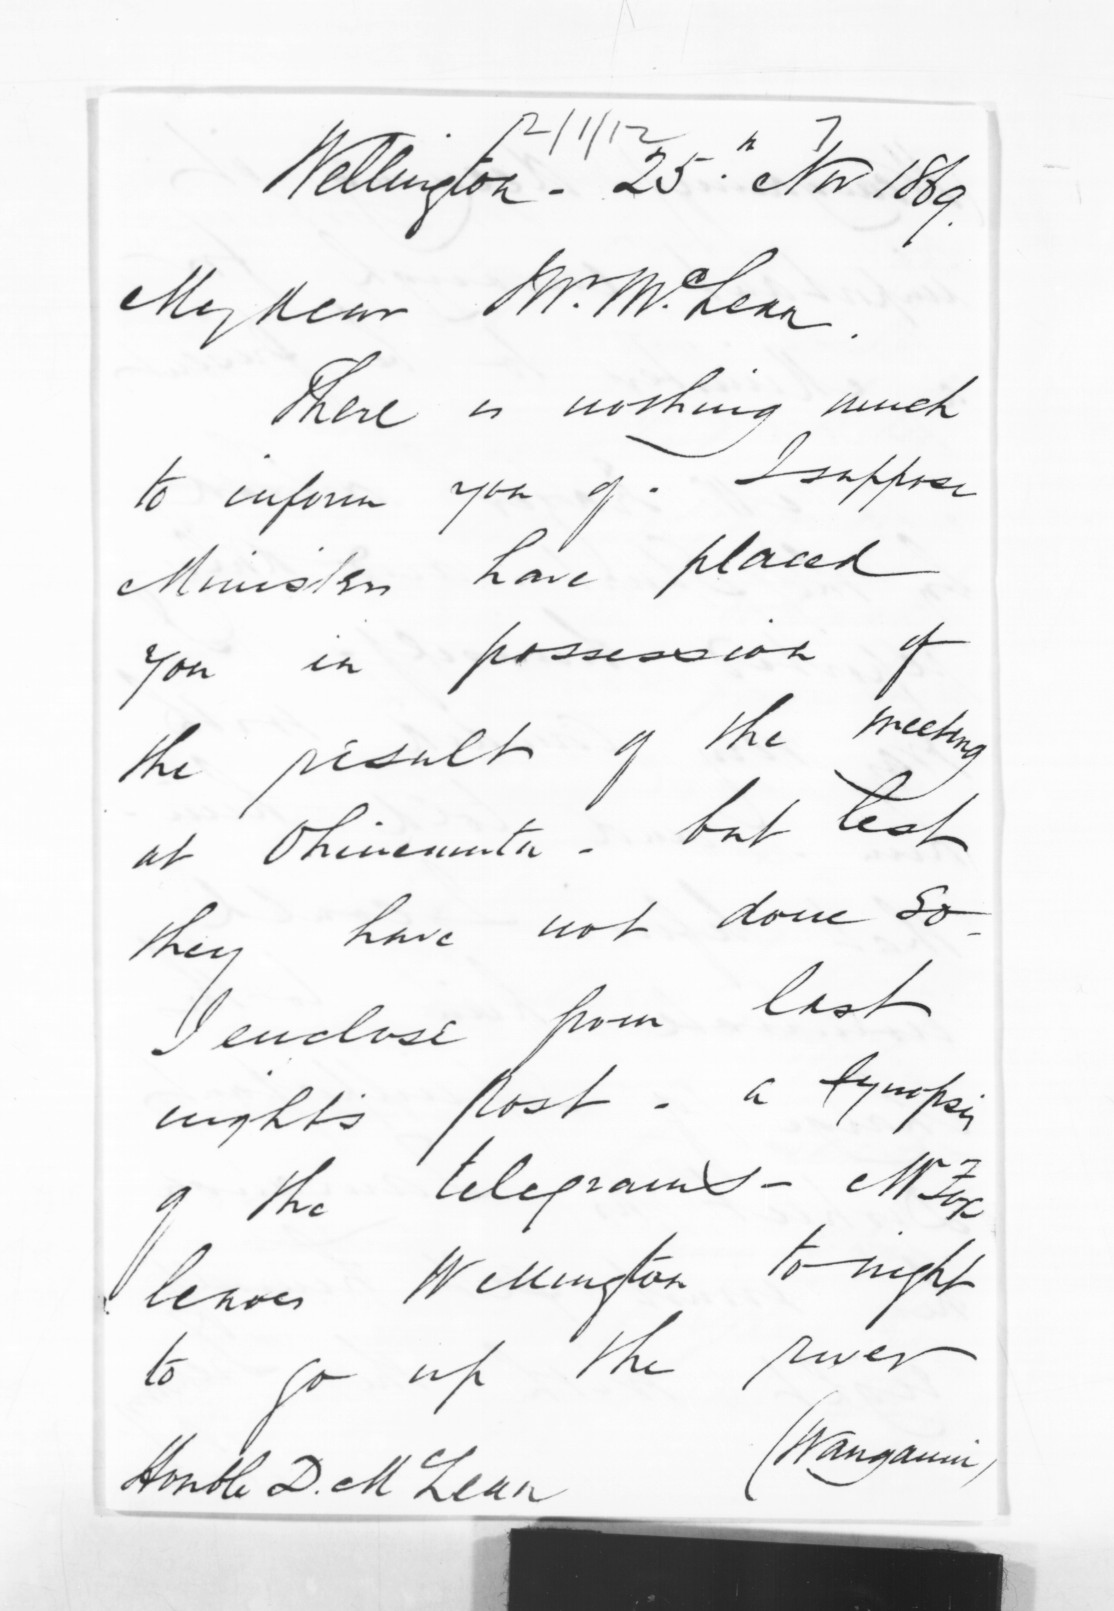 12/1/12 7
Wellington - 25th Nov 1869.
My dear Mr. McLean.
There is nothing much
to inform you of. I suppose
Ministers have placed
you in possession of
the result of the meeting
at Ohinemutu - but lest
they have not done so -
I enclose from last
night's Post - a synopsis
of the telegrams - Mr Fox
leaves Wellington to-night
to go up the river
(Wanganui)
Honble D. McLean